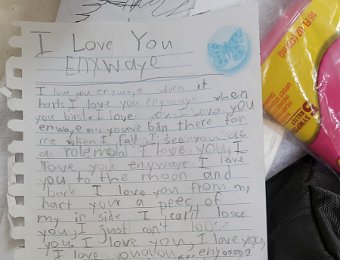 I Love You
ENYWAYE
I love you enywaye when it
hurts I love you enywaye when
you I love you I love you
enwaye you've bān there for
me when I fall I see you as
a rolemodl I love you I
love you enywaye I love
you to the moon and
back I love you from my
hart your a peec of
my in side I cajt loose
you, I just can't loose
you. I love you, I love you,
I love you